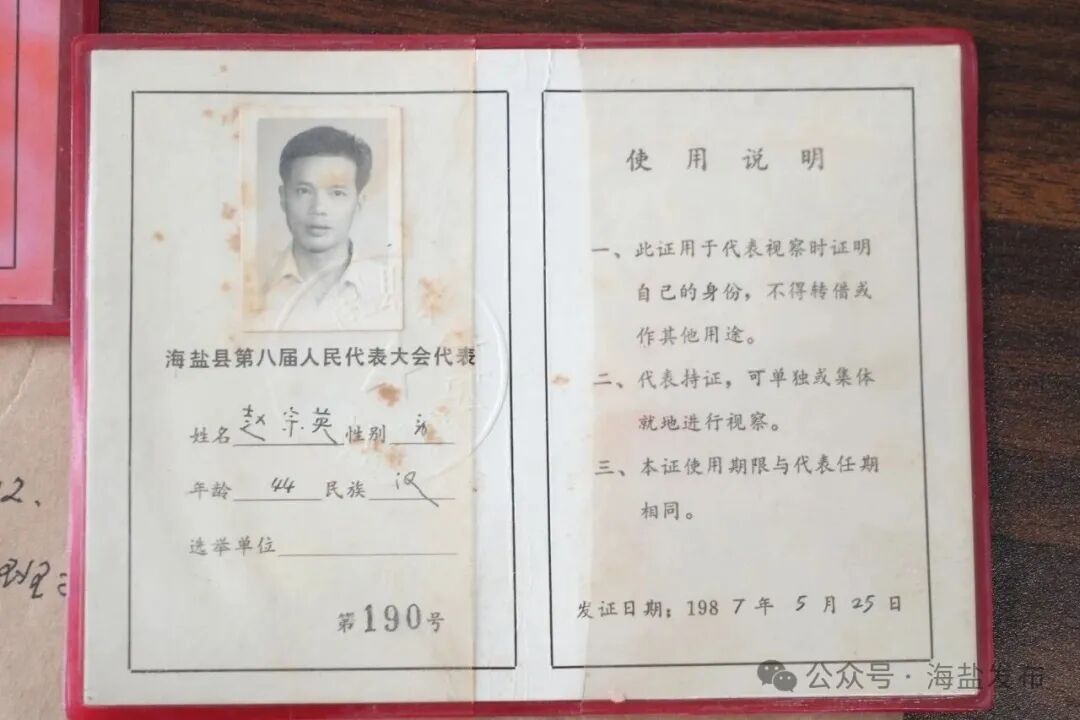 海盐县第八届人民代表大会代表
姓名 赵宗英 性别 男
年龄 44 民族 汉
选举单位
第190号
使用说明
一、此证用于代表视察时证明
自己的身份，不得转借或
作其他用途。
二、代表持证，可单独或集体
就地进行视察。
三、本证使用期限与代表任期
相同。
发证日期：1987年5月25日
2.
公众号·海盐发布